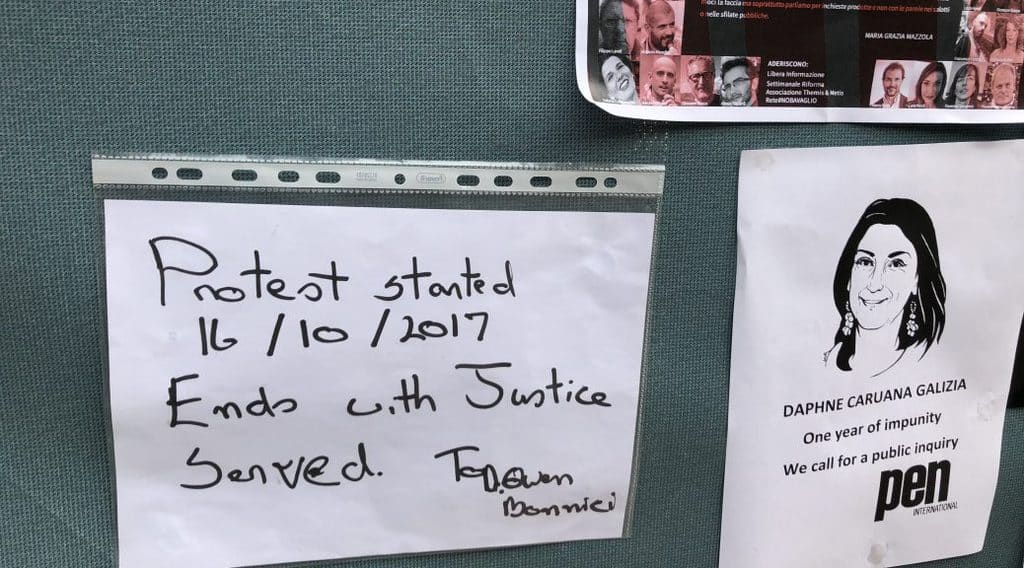 moci la faccia ma soprattutto parliamo per inchieste prodotte e non con le parole nei salotti
o nelle sfilate pubbliche.
MARIA GRAZIA MAZZOLA
ADERISCONO:
Libera Informazione
Settimanale Riforma
Associazione Themis & Metis
Rete#NOBAVAGLIO
Protest started
16/10/2017
Ends with Justice
Served.
Owen
Bonnici
DAPHNE CARUANA GALIZIA
One year of impunity
We call for a public inquiry
pen
INTERNATIONAL